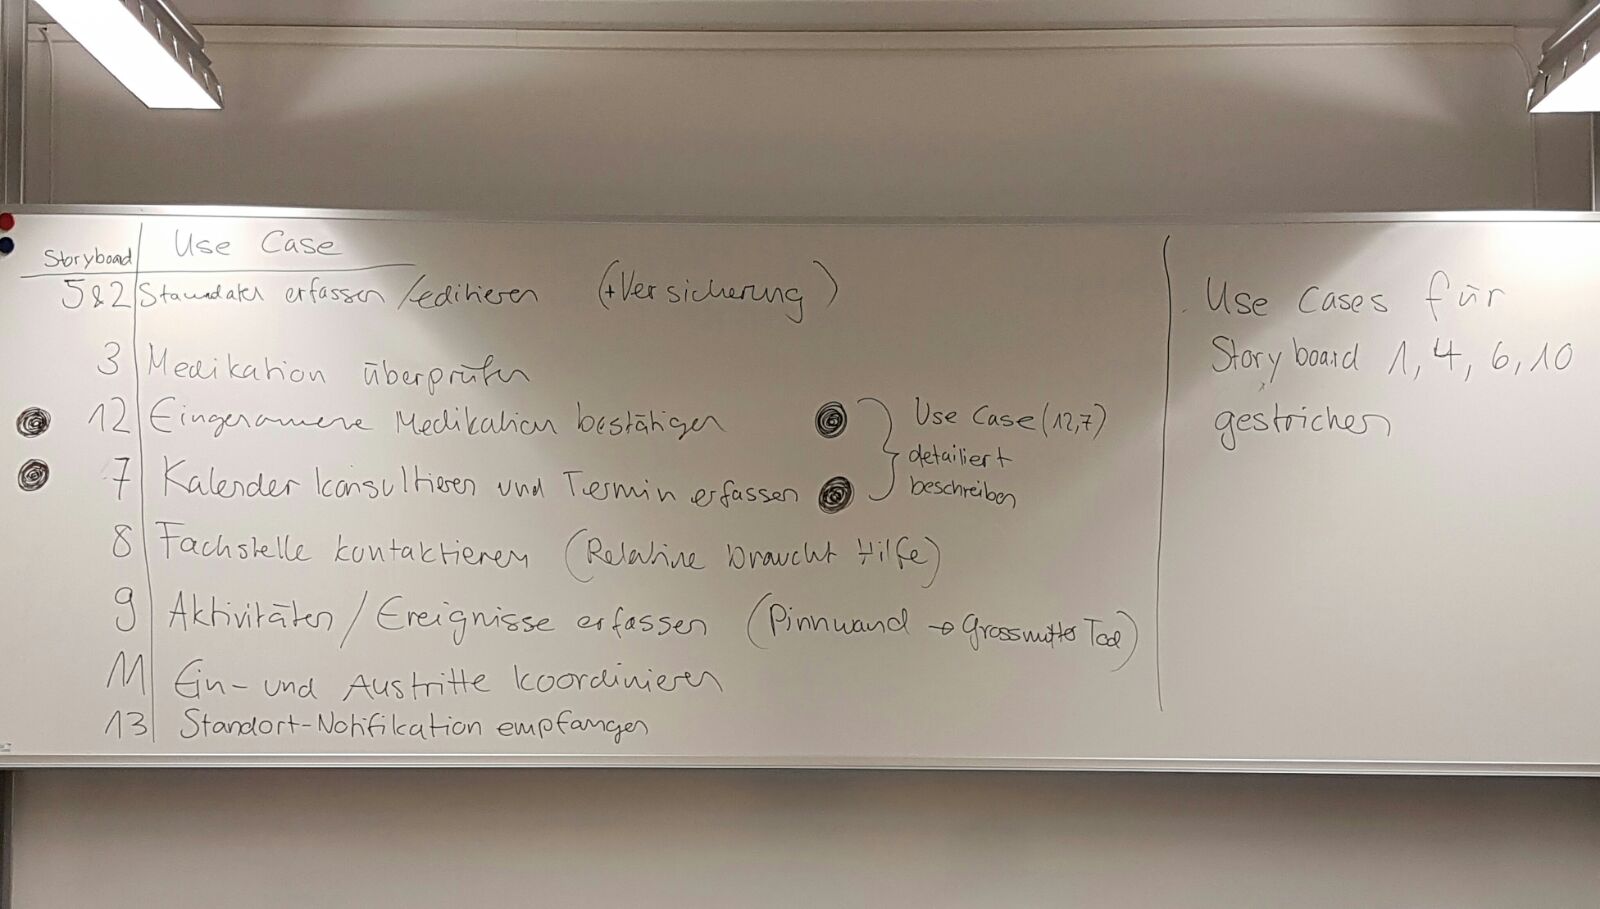 Storyboard Use Case
5&2 Stammdaten erfassen/editieren (+Versicherung)
3 Medikation überprüfen
12 Eingenommene Medikation bestätigen
7 Kalender konsultieren und Termin erfassen
8 Fachstelle kontaktieren (Relative braucht Hilfe)
9 Aktivitäten/Ereignisse erfassen (Pinnwand → Grossmutter Tod)
11 Ein- und Austritte koordinieren
13 Standort-Notifikation empfangen
Use Case (12,7)
detailiert
beschreiben
Use Cases für
Storyboard 1, 4, 6, 10
gestrichen